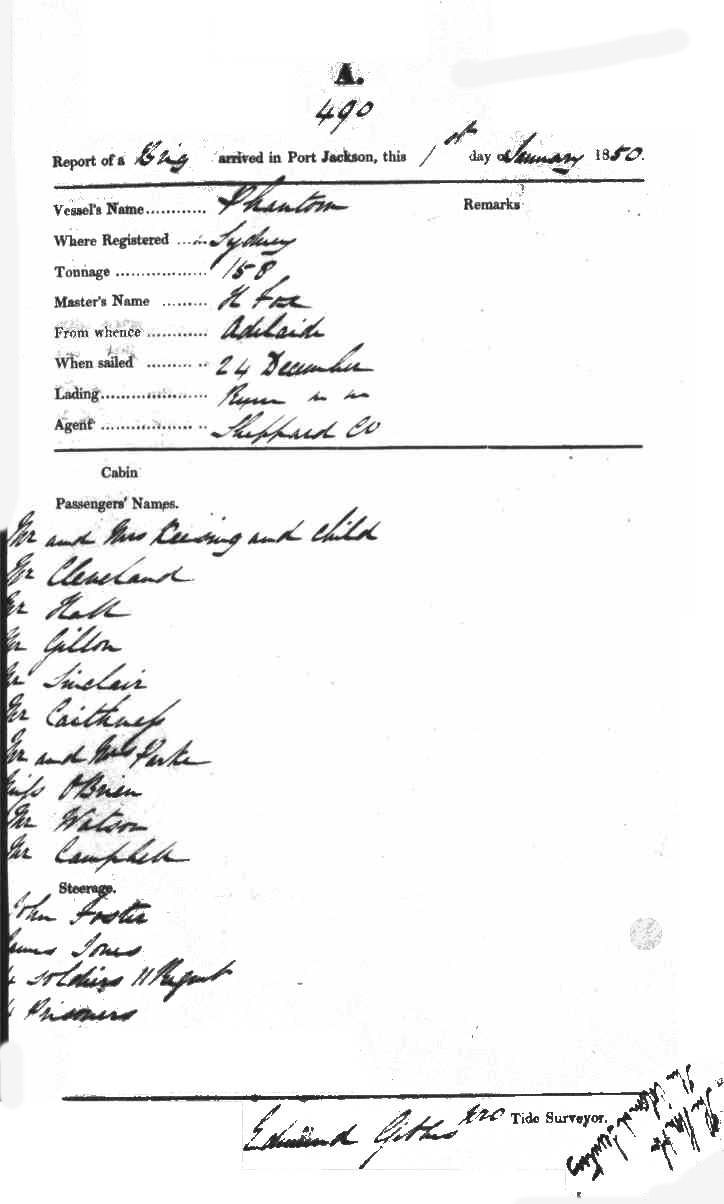 A.
490
Report of a Brig arrived in Port Jackson, this 1st day of January 1850.
Vessel's Name............ Phantom
Remarks
Where Registered ...... Sydney
Tonnage .................. 158
Master's Name ......... H Fox
From whence ............ Adelaide
When sailed ............ 24 December
Lading.....................
Agent ..................... Sheppard Co
Cabin
Passengers' Names.
Mr and Mrs and child
Mr Cleveland
Mr Hall
Mr Gillon
Mr Sinclair
Mr Caithness
Mr and Mrs Parke
Miss OBrien
Mr Watson
Mr Campbell
Steerage.
John Foster
James Jones
4 Soldiers 11 Regmt
4 Prisoners
Edmund Gibbes pro Tide Surveyor.